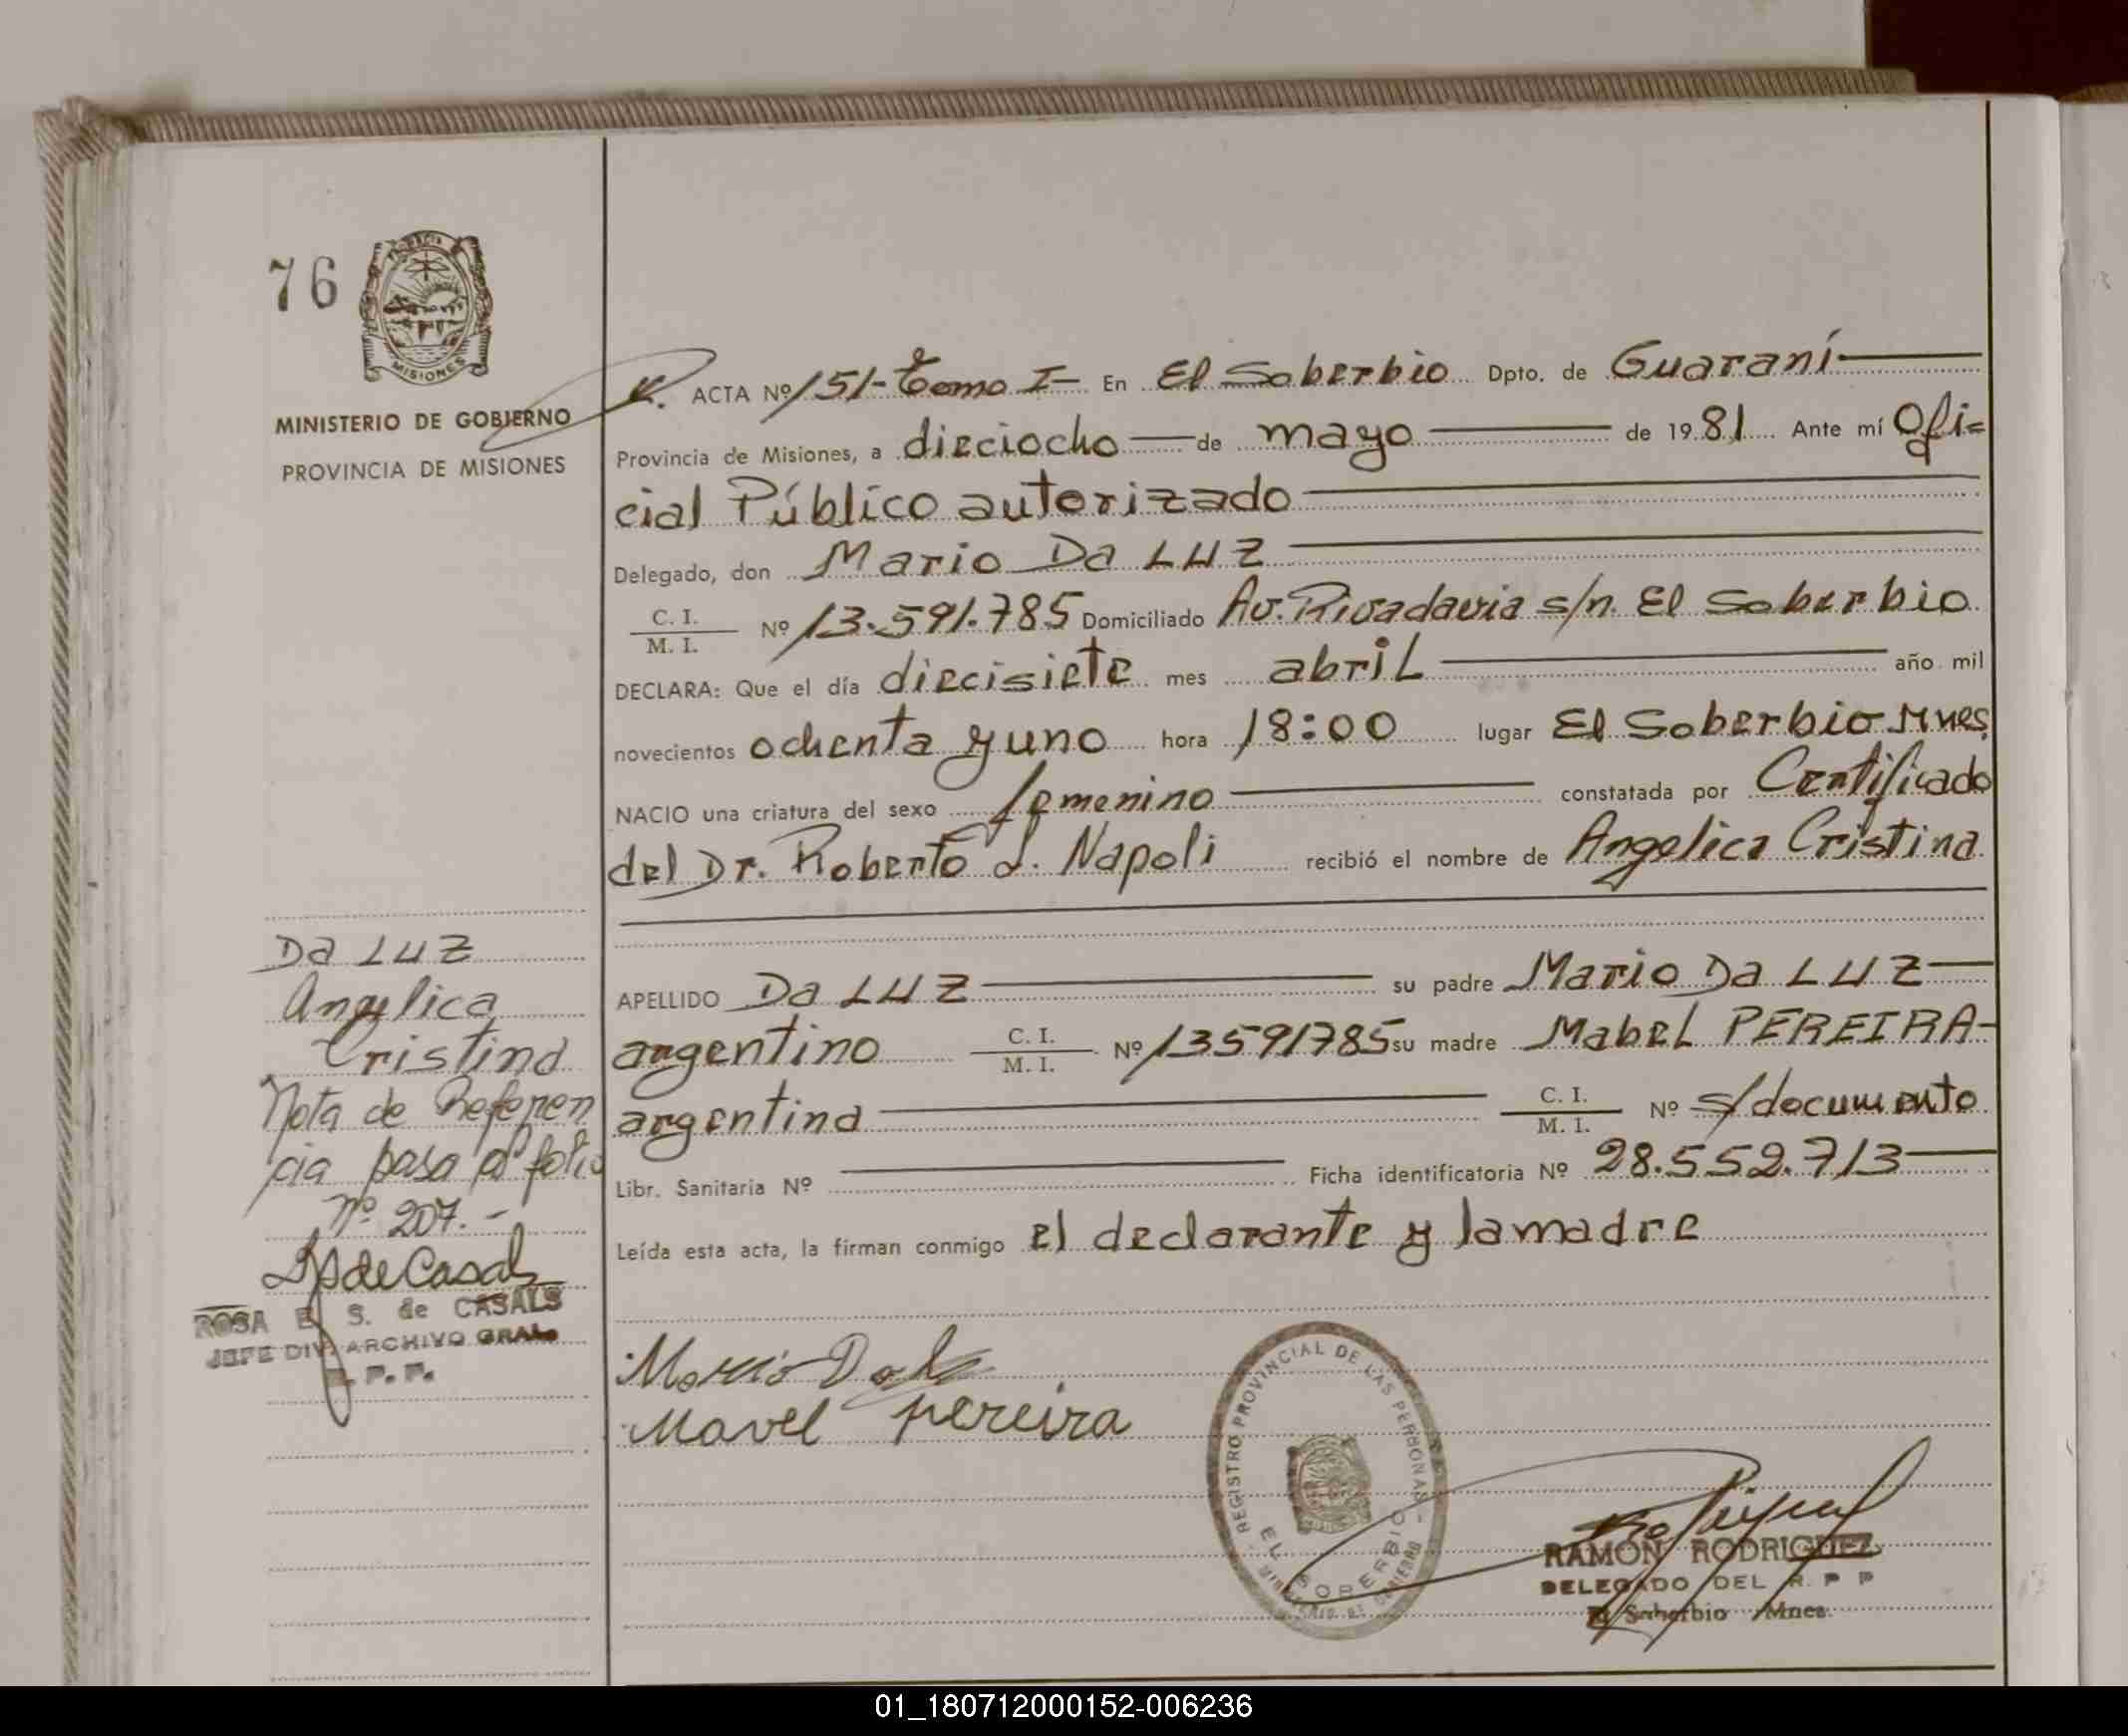 76
MISIONES
MINISTERIO DE GOBIERNO
PROVINCIA DE MISIONES
ACTA Nº 151-Tomo I- En El Soberbio Dpto. de Guaraní
Provincia de Misiones, a dieciocho de mayo de 1981 Ante mí Ofi=
cial Público autorizado
Delegado, don Mario Da LUZ
C. I.
M. I. Nº 13.591.785 Domiciliado Av. Rivadavia s/n. El Soberbio
DECLARA: Que el día diecisiete mes abril año mil
novecientos ochenta y uno hora 18:00 lugar El Soberbio Mnes.
NACIO una criatura del sexo femenino constatada por Certificado
del Dr. Roberto L. Napoli recibió el nombre de Angelica Cristina
APELLIDO Da LUZ su padre Mario Da LUZ
argentino C. I. M. I. Nº 13591785 su madre Mabel PEREIRA-
argentina C. I. M. I. Nº s/documento
Libr. Sanitaria Nº Ficha identificatoria Nº 28.552.713
Leída esta acta, la firman conmigo el declarante y la madre
Da LUZ
Angelica
Cristina
Nota de Referen
cia pasa al folio
Nº 207.-
ROSA E. S. de CASALS
JEFE DIV. ARCHIVO GRAL.
R. P. P.
Mario Da Luz
Mavel Pereira
REGISTRO PROVINCIAL DE LAS PERSONAS
EL SOBERBIO
RAMON RODRIGUEZ
DELEGADO DEL R. P P
El Soberbio Mnes.
01_180712000152-006236